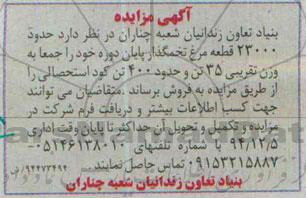 آگهی مزایده
بنیاد تعاون زندانیان شعبه چناران در نظر دارد حدود
۲۳۰۰۰ قطعه مرغ تخمگذار پایان دوره خود را جمعا به
وزن تقریبی ۳۵ تن و حدود ۴۰۰ تن کود استحصالی را
از طریق مزایده به فروش برساند .متقاضیان می توانند
جهت کسب اطلاعات بیشتر و دریافت فرم شرکت در
مزایده و تکمیل و تحویل آن حداکثر تا پایان وقت اداری
۹۴/۱۲/۵ با شماره تلفنهای ۰۵۱۴۶۱۲۸۰۱۰-
۰۹۱۵۳۲۱۵۸۸۷ تماس حاصل نمایند.
بنیاد تعاون زندانیان شعبه چناران